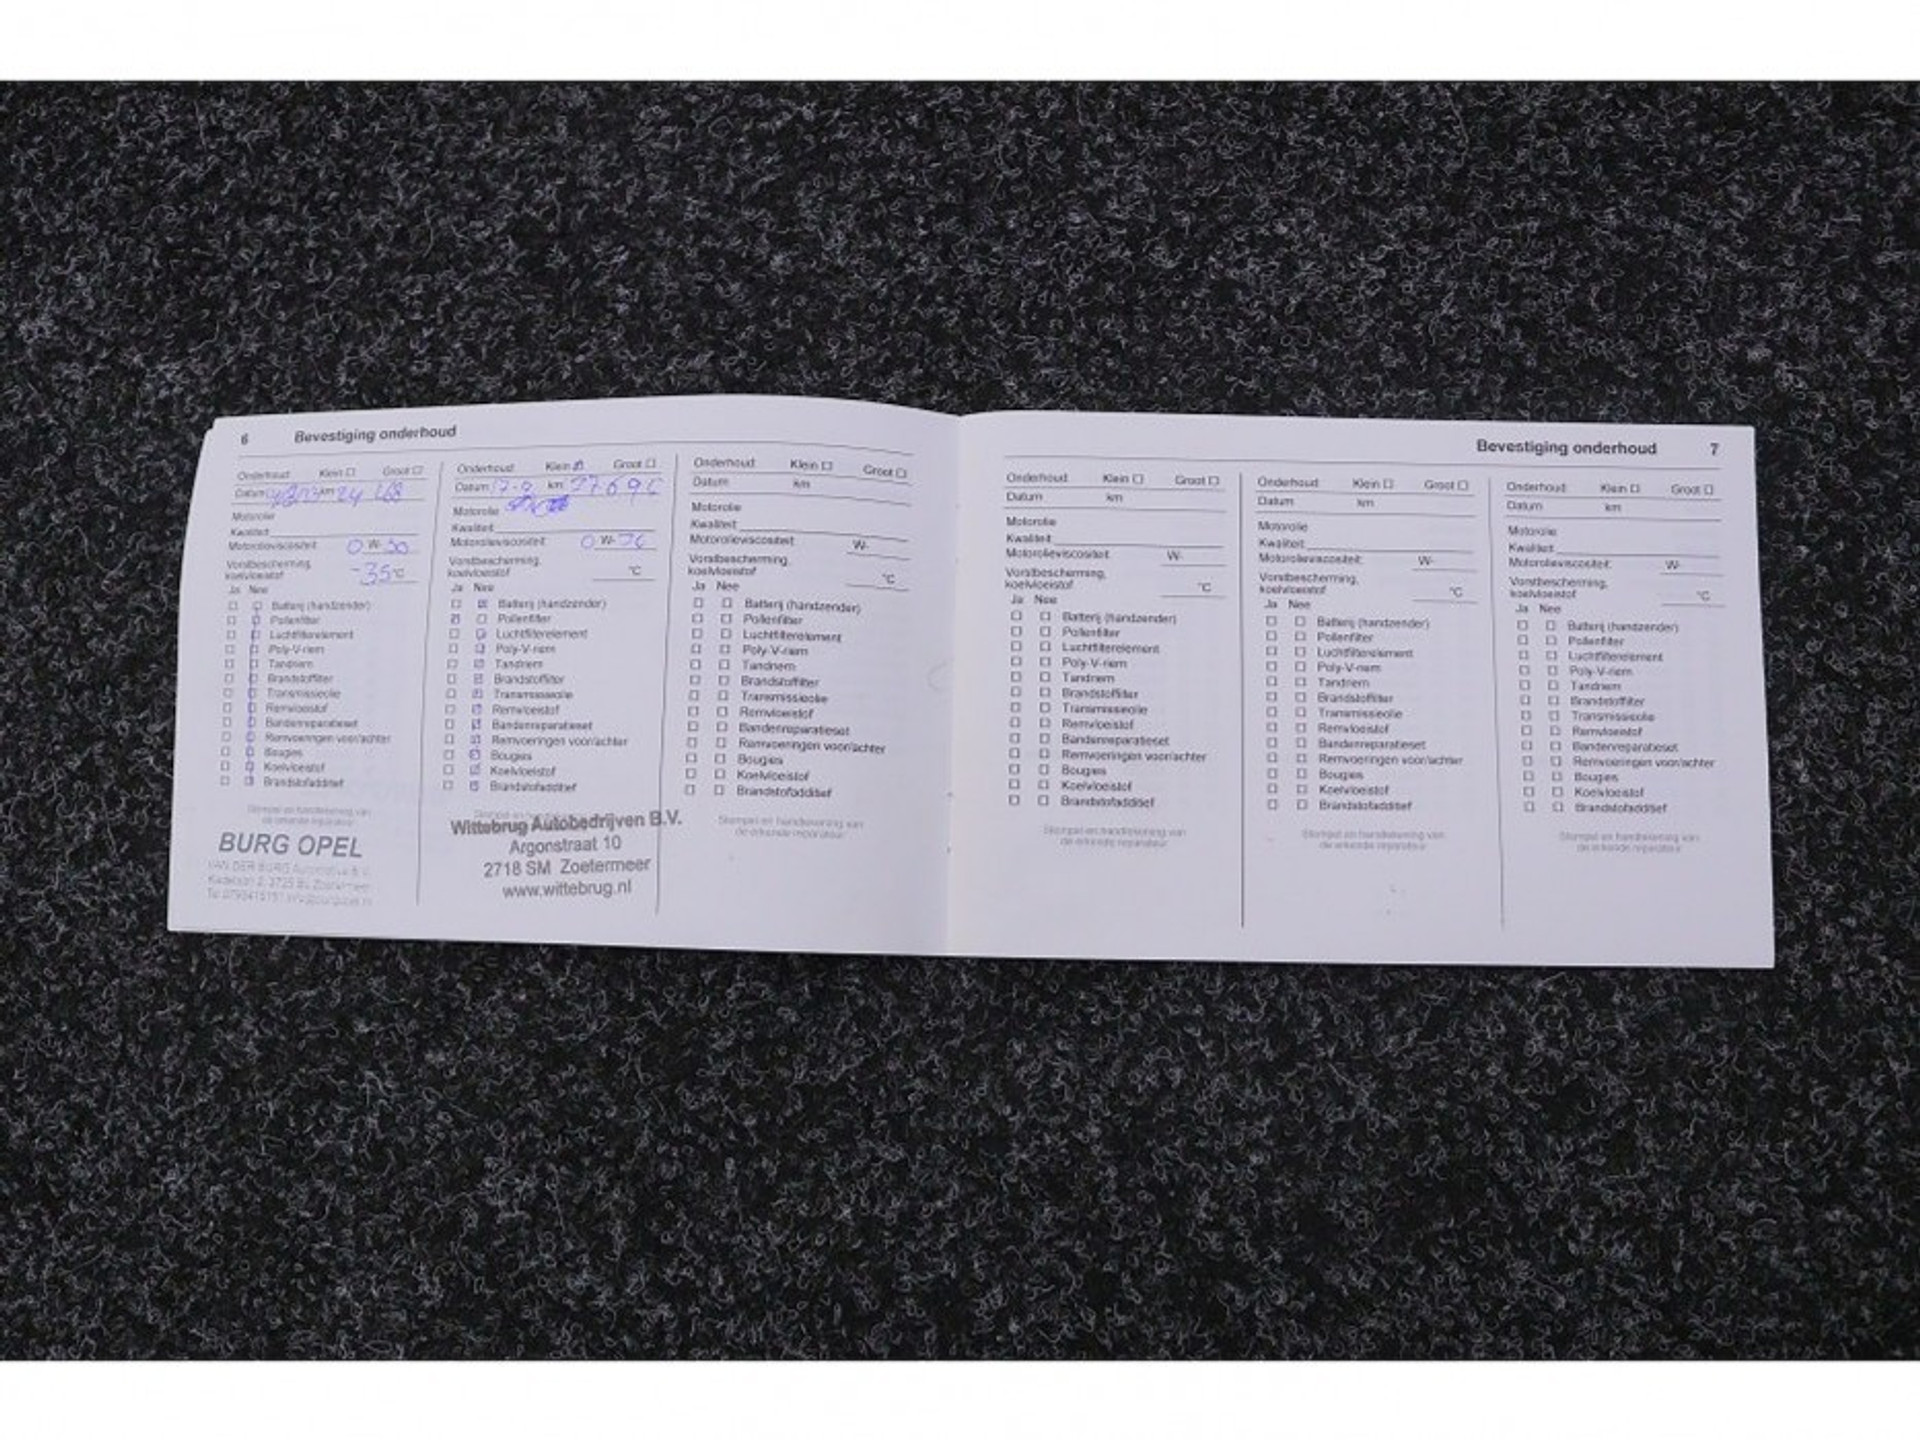 6 Bevestiging onderhoud
Onderhoud Klein Groot
Datum km
Motorolie
Kwaliteit
Motorolieviscositeit 0 W-30
Vorstbescherming,
koelvloeistof -35 °C
Ja Nee
Batterij (handzender)
Pollenfilter
Luchtfilterelement
Poly-V-riem
Tandriem
Brandstoffilter
Transmissieolie
Remvloeistof
Bandenreparatieset
Remvoeringen voor/achter
Bougies
Koelvloeistof
Brandstofadditief
Stempel en handtekening van
de erkende reparateur
BURG OPEL
VAN DER BURG
Onderhoud Klein Groot
Datum km
Motorolie
Kwaliteit
Motorolieviscositeit 0 W-
Vorstbescherming,
koelvloeistof °C
Ja Nee
Batterij (handzender)
Pollenfilter
Luchtfilterelement
Poly-V-riem
Tandriem
Brandstoffilter
Transmissieolie
Remvloeistof
Bandenreparatieset
Remvoeringen voor/achter
Bougies
Koelvloeistof
Brandstofadditief
Wittebrug Autobedrijven B.V.
Argonstraat 10
2718 SM Zoetermeer
www.wittebrug.nl
Onderhoud Klein Groot
Datum km
Motorolie
Kwaliteit
Motorolieviscositeit W-
Vorstbescherming,
koelvloeistof °C
Ja Nee
Batterij (handzender)
Pollenfilter
Luchtfilterelement
Poly-V-riem
Tandriem
Brandstoffilter
Transmissieolie
Remvloeistof
Bandenreparatieset
Remvoeringen voor/achter
Bougies
Koelvloeistof
Brandstofadditief
Stempel en handtekening van
de erkende reparateur
Bevestiging onderhoud 7
Onderhoud Klein Groot
Datum km
Motorolie
Kwaliteit
Motorolieviscositeit W-
Vorstbescherming,
koelvloeistof °C
Ja Nee
Batterij (handzender)
Pollenfilter
Luchtfilterelement
Poly-V-riem
Tandriem
Brandstoffilter
Transmissieolie
Remvloeistof
Bandenreparatieset
Remvoeringen voor/achter
Bougies
Koelvloeistof
Brandstofadditief
Stempel en handtekening van
de erkende reparateur
Onderhoud Klein Groot
Datum km
Motorolie
Kwaliteit
Motorolieviscositeit W-
Vorstbescherming,
koelvloeistof °C
Ja Nee
Batterij (handzender)
Pollenfilter
Luchtfilterelement
Poly-V-riem
Tandriem
Brandstoffilter
Transmissieolie
Remvloeistof
Bandenreparatieset
Remvoeringen voor/achter
Bougies
Koelvloeistof
Brandstofadditief
Stempel en handtekening van
de erkende reparateur
Onderhoud Klein Groot
Datum km
Motorolie
Kwaliteit
Motorolieviscositeit W-
Vorstbescherming,
koelvloeistof °C
Ja Nee
Batterij (handzender)
Pollenfilter
Luchtfilterelement
Poly-V-riem
Tandriem
Brandstoffilter
Transmissieolie
Remvloeistof
Bandenreparatieset
Remvoeringen voor/achter
Bougies
Koelvloeistof
Brandstofadditief
Stempel en handtekening van
de erkende reparateur